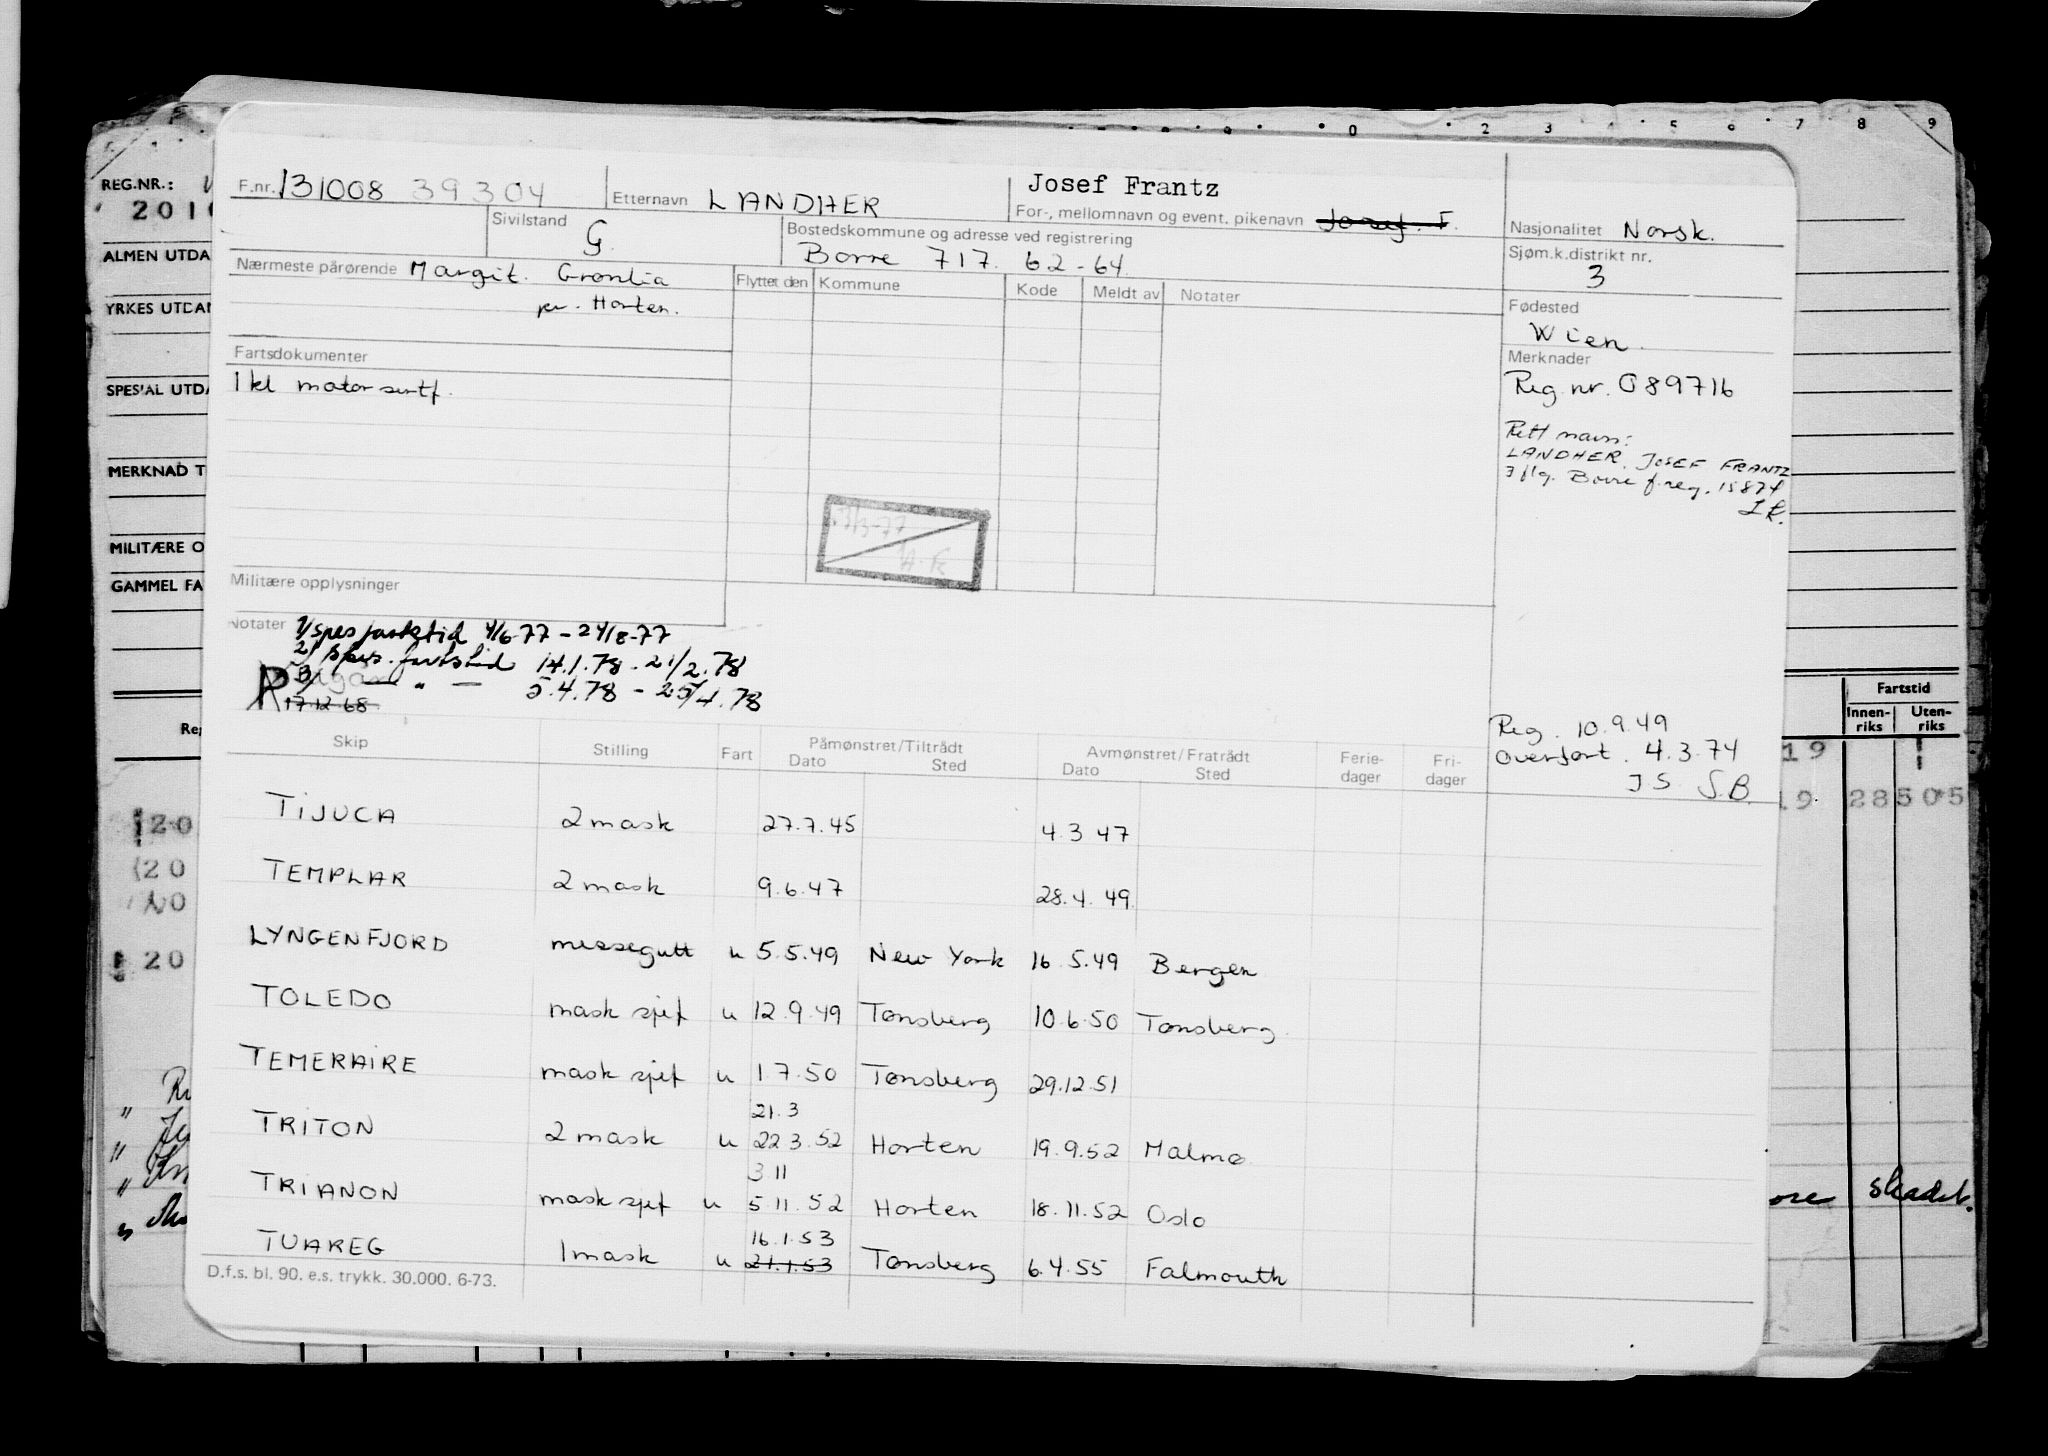 0 2 3 4 5 6 7 8 9
REG.NR.:
ALMEN UTDA
YRKES UTDAN
SPESIAL UTDA
MERKNAD T
MILITÆRE O
GAMMEL FA
F.nr. 131008 39304 Etternavn LANDHER
Josef Frantz
For-, mellomnavn og event. pikenavn Josef. F.
Nasjonalitet Norsk.
Sivilstand G.
Bostedskommune og adresse ved registrering
Borre 717. 62-64.
Sjøm.k.distrikt nr.
3
Nærmeste pårørende Margit. Grønlia
pr. Horten.
Flyttet den Kommune Kode Meldt av Notater
Fødested
Wien.
Merknader
Reg. nr. 089716
Rett navn:
LANDHER, JOSEF FRANTZ
3 flg. Borre f.reg. 15874
Fartsdokumenter
1 kl motor sertf.
Militære opplysninger
Notater 1/ spes fartstid 4/6-77 - 24/8-77
2/ spes. fartstid 14.1.78 - 21/2.78
3/ — " — 5.4.78 - 25/4.78
R 17 12 68
Reg. 10.9.49
Overført. 4.3.74
J S S.B.
Skip Stilling Fart Påmønstret/Tiltrådt Dato Sted Avmønstret/Fratrådt Dato Sted Ferie-dager Fri-dager
TIJUCA 2 mask 27.7.45 4.3 47
TEMPLAR 2 mask 9.6.47 28.4. 49.
LYNGENFJORD messegutt u 5.5.49 New York 16 5.49 Bergen
TOLEDO mask sjef u 12.9.49 Tønsberg 10.6.50 Tønsberg.
TEMERAIRE mask sjef u 1.7.50 Tønsberg 29.12.51
21.3
TRITON 2 mask u 22 3.52 Horten 19.9.52 Malmø
3 11
TRIANON mask sjef u 5.11.52 Horten 18.11.52 Oslo
16.1.53
TUAREG 1 mask u 21.1.53 Tønsberg 6.4.55 Falmouth
D.f.s. bl. 90. e.s. trykk. 30.000. 6-73.
Fartstid
Innen-riks Uten-riks
19
19 28505
ore skadet.